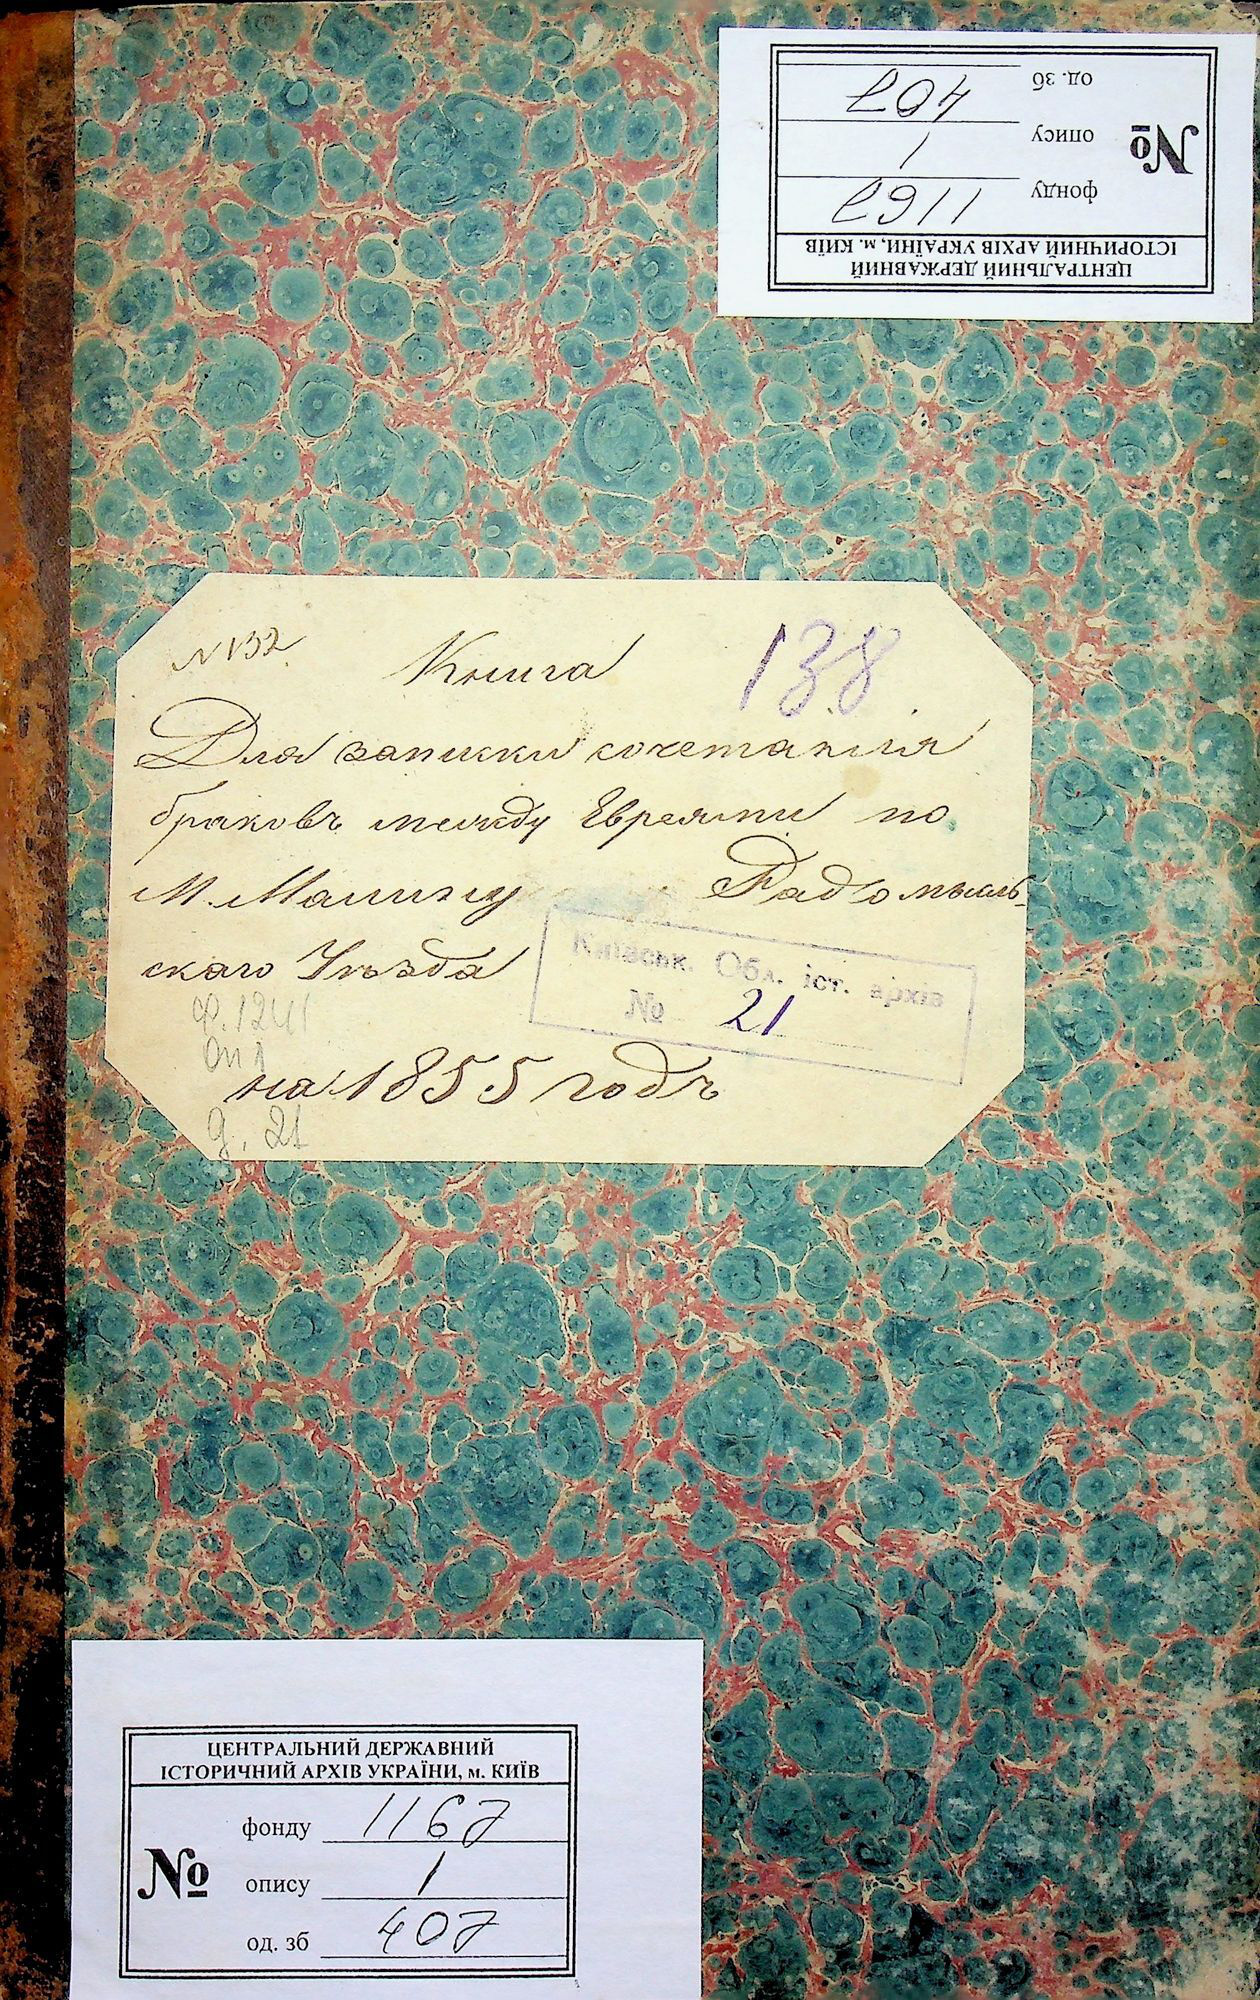 ЦЕНТРАЛЬНИЙ ДЕРЖАВНИЙ
ІСТОРИЧНИЙ АРХІВ УКРАЇНИ, м. КИЇВ
№
фонду 1167
опису 1
од. зб 407
N 132
Книга
138
Для записки сочетанія
браковъ между Евреями по
М. Малину Радомысль-
скаго Уѣзда
Київськ. Обл. іст. архів
№ 21
ф. 1241
Оп 1
на 1855 годъ
д. 21
ЦЕНТРАЛЬНИЙ ДЕРЖАВНИЙ
ІСТОРИЧНИЙ АРХІВ УКРАЇНИ, м. КИЇВ
№
фонду 1167
опису 1
од. зб 407